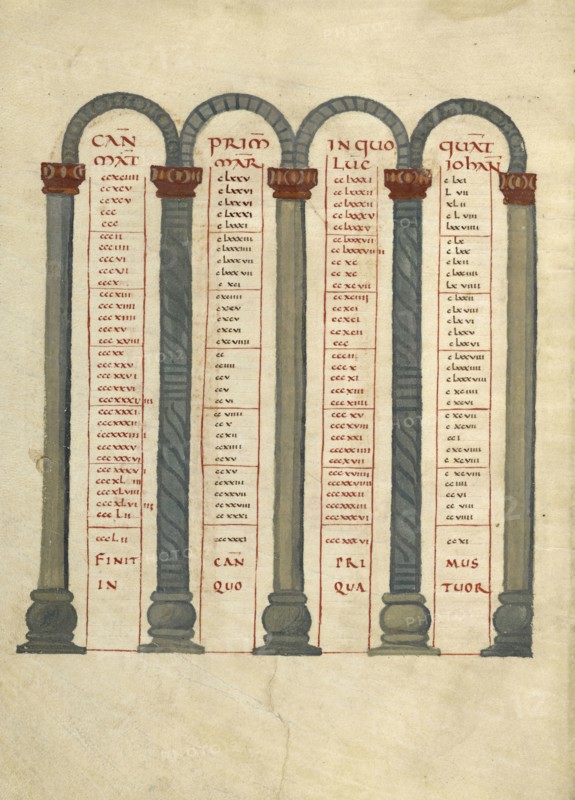 CAN̄ PRIM̄ IN QUO QUAT̄
MAT̄ MAR LUC̄ IOHAN̄
ccxciiii clxxv cclxxxi clxi
ccxcv clxxvi cclxxxii L vii
ccxcv clxxvi cclxxxii xLii
ccc clxxxi cclxxxv c L viii
ccc clxxxi cclxxxv lxxviiii
cccii clxxxiii cclxxxvii clx
ccciiii clxxxiiii cclxxxviiii clxx
cccvi clxxxvii ccxc clxii
cccxi clxxxvii ccxc clxxiiii
cccx cxci ccxcvii
cccxiii cxciiii ccxciiii clxxii
cccxiiii cxcv ccxci clxviii
cccxiiii cxcv ccxci
cccxv cxcvi ccxcii clxxv
cccxviii cxcviiii ccc clxxvi
cccxx cc cccii clxxviiii
cccxxv cciiii cccx clxxxiiii
cccxxvi ccv cccxi clxxxviii
cccxxvi ccv cccxiii cxciiii
ccvi cccxiiii cxcvi
cccxxxi ccviiii cccxv cxcvii
cccxxxii ccx cccxviii cxcvii
cccxxxiiii ccxii cccxxi cci
cccxxxv ccxiiii cccxxiiii cxcviiii
cccxxxvi ccxv cccxxvii cxcviii
ccxv cccxviii cxcviii
cccxLiii ccxxiii cccxxviiii cciii
cccxLviii ccxxvii cccxxxii ccvi
ccxxviii ccviii
cccLii ccxxxi cccxxxvi ccviiii
cccLii ccxxxi cccxxxvi ccxi
FINIT CAN̄ PRI MUS
IN QUO QUA TUOR